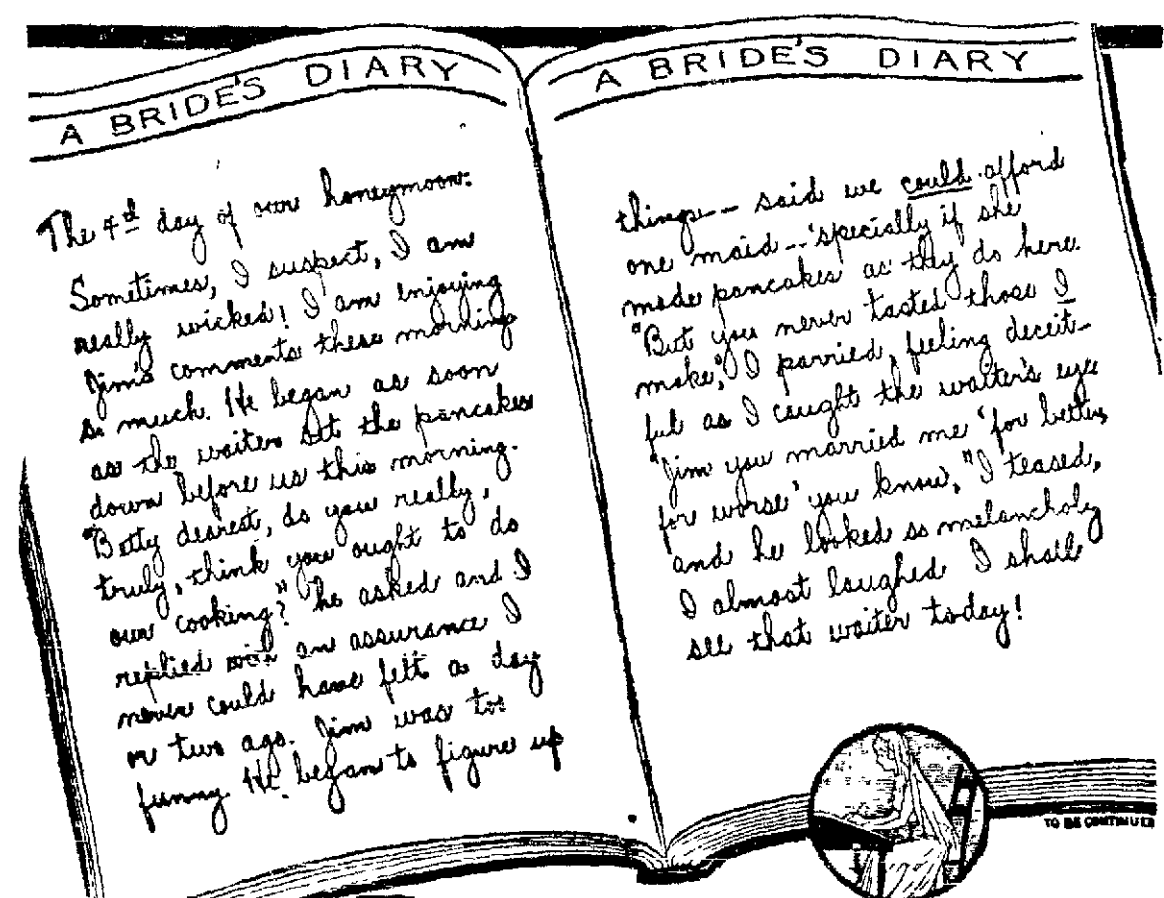 A BRIDE'S DIARY
The 4d day of our honeymoon:
Sometimes, I suspect, I am
really wicked! I am enjoying
Jim's comments these mornings
so much. He began as soon
as the waiter set the pancakes
down before us this morning.
"Betty dearest, do you really,
truly, think you ought to do
our cooking?" he asked and I
replied with an assurance I
never could have felt a day
or two ago. Jim was too
funny. He began to figure up
A BRIDE'S DIARY
things — said we could afford
one maid — 'specially if she
made pancakes as they do here.
"But you never tasted those I
make," I parried, feeling deceit-
ful as I caught the waiter's eye
"Jim you married me 'for better,
for worse' you know," I teased,
and he looked so melancholy
I almost laughed. I shall
see that waiter today!
TO BE CONTINUED